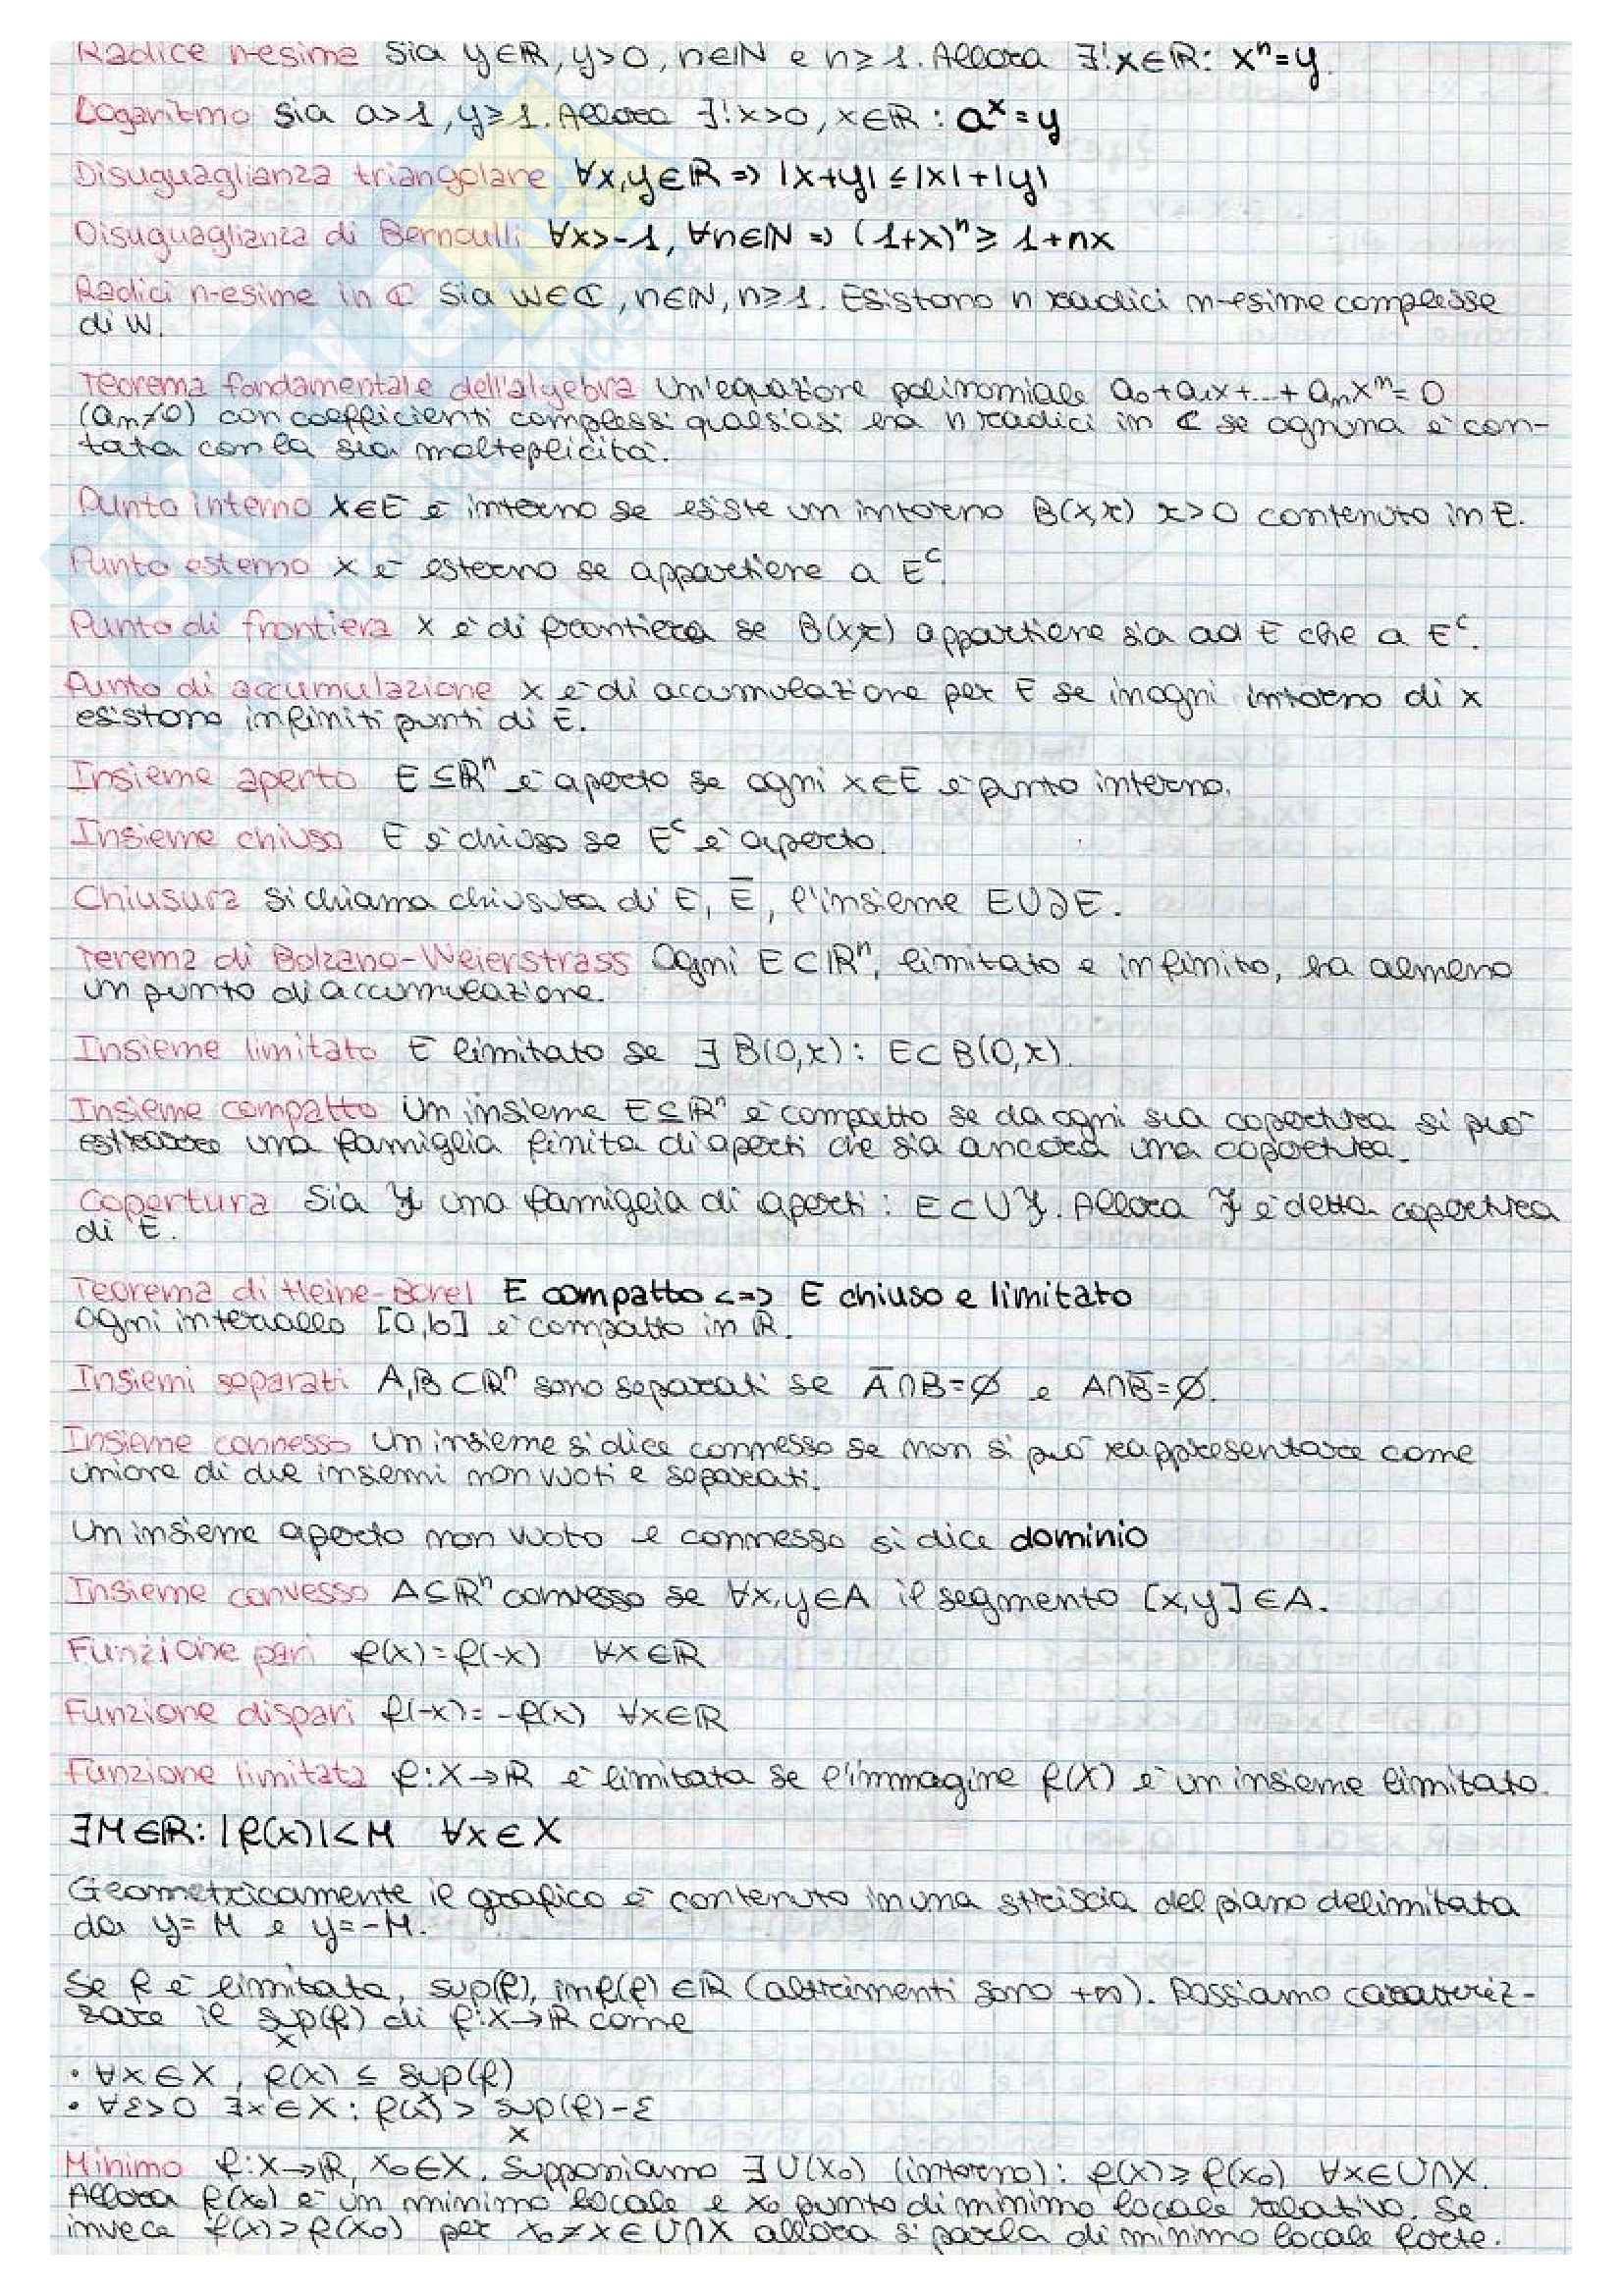 Radice n-esima Sia y∈ℝ, y>0, n∈ℕ e n≥1. Allora ∃!x∈ℝ: xⁿ=y.
Logaritmo Sia a>1, y≥1. Allora ∃!x>0, x∈ℝ: aˣ=y
Disuguaglianza triangolare ∀x,y∈ℝ => |x+y|≤|x|+|y|
Disuguaglianza di Bernoulli ∀x>-1, ∀n∈ℕ => (1+x)ⁿ≥ 1+nx
Radici n-esime in ℂ Sia w∈ℂ, n∈ℕ, n≥1. Esistono n radici n-esime complesse
di w.
Teorema fondamentale dell'algebra Un'equazione polinomiale a₀+a₁x+...+aₙxⁿ=0
(aₙ≠0) con coefficienti complessi qualsiasi ha n radici in ℂ se ognuna è con-
tata con la sua molteplicità.
Punto interno x∈E è interno se esiste un intorno B(x,r) r>0 contenuto in E.
Punto esterno x è esterno se appartiene a Eᶜ.
Punto di frontiera x è di frontiera se B(x,r) appartiene sia ad E che a Eᶜ.
Punto di accumulazione x è di accumulazione per E se in ogni intorno di x
esistono infiniti punti di E.
Insieme aperto E⊆ℝⁿ è aperto se ogni x∈E è punto interno.
Insieme chiuso E è chiuso se Eᶜ è aperto.
Chiusura Si chiama chiusura di E, E̅, l'insieme E∪∂E.
Terema di Bolzano-Weierstrass Ogni E⊂ℝⁿ, limitato e infinito, ha almeno
un punto di accumulazione.
Insieme limitato E limitato se ∃ B(0,r): E⊂B(0,r).
Insieme compatto Un insieme E⊆ℝⁿ è compatto se da ogni sua copertura si può
estrarre una famiglia finita di aperti che sia ancora una copertura.
Copertura Sia ℱ una famiglia di aperti: E⊂∪ℱ. Allora ℱ è detta copertura
di E.
Teorema di Heine-Borel E compatto <=> E chiuso e limitato
Ogni intervallo [a,b] è compatto in ℝ.
Insiemi separati A,B⊂ℝⁿ sono separati se A̅∩B=∅ e A∩B̅=∅.
Insieme connesso Un insieme si dice connesso se non si può rappresentare come
unione di due insiemi non vuoti e separati.
Un insieme aperto non vuoto e connesso si dice dominio
Insieme convesso A⊆ℝⁿ convesso se ∀x,y∈A il segmento [x,y]∈A.
Funzione pari f(x)=f(-x) ∀x∈ℝ
Funzione dispari f(-x)=-f(x) ∀x∈ℝ
Funzione limitata f:X→ℝ è limitata se l'immagine f(X) è un insieme limitato.
∃M∈ℝ: |f(x)|<M ∀x∈X
Geometricamente il grafico è contenuto in una striscia del piano delimitata
da y=M e y=-M.
Se f è limitata, sup(f), inf(f)∈ℝ (altrimenti sono +∞). Possiamo caratteriz-
zare il sup(f) di f:X→ℝ come
X
• ∀x∈X, f(x) ≤ sup(f)
X
• ∀ε>0 ∃x∈X: f(x) > sup(f)-ε
X
Minimo f:X→ℝ, x₀∈X. Supponiamo ∃U(x₀) (intorno): f(x)≥f(x₀) ∀x∈U∩X.
Allora f(x₀) è un minimo locale e x₀ punto di minimo locale relativo. Se
invece f(x)>f(x₀) per x₀≠x∈U∩X allora si parla di minimo locale forte.